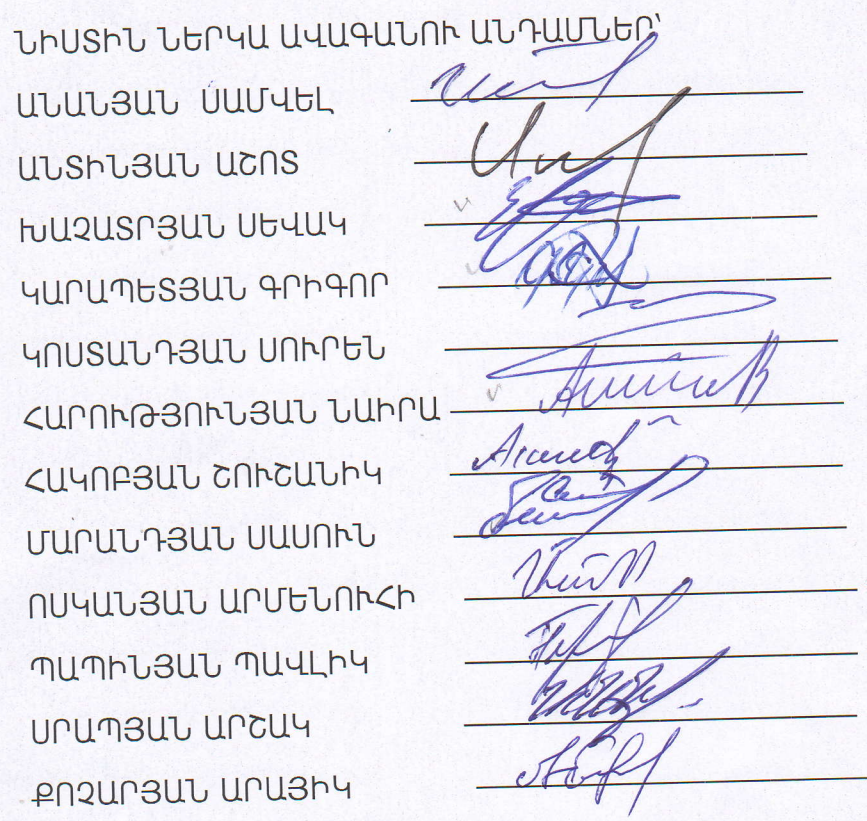 ՆԻՍՏԻՆ ՆԵՐԿԱ ԱՎԱԳԱՆՈՒ ԱՆԴԱՄՆԵՐ՝
ԱՆԱՆՅԱՆ ՍԱՄՎԵԼ
ԱՆՏԻՆՅԱՆ ԱՇՈՏ
ԽԱՉԱՏՐՅԱՆ ՍԵՎԱԿ
ԿԱՐԱՊԵՏՅԱՆ ԳՐԻԳՈՐ
ԿՈՍՏԱՆԴՅԱՆ ՍՈՒՐԵՆ
ՀԱՐՈՒԹՅՈՒՆՅԱՆ ՆԱԻՐԱ
ՀԱԿՈԲՅԱՆ ՇՈՒՇԱՆԻԿ
ՄԱՐԱՆԴՅԱՆ ՍԱՍՈՒՆ
ՈՍԿԱՆՅԱՆ ԱՐՄԵՆՈՒՀԻ
ՊԱՊԻՆՅԱՆ ՊԱՎԼԻԿ
ՍՐԱՊՅԱՆ ԱՐՇԱԿ
ՔՈՉԱՐՅԱՆ ԱՐԱՅԻԿ